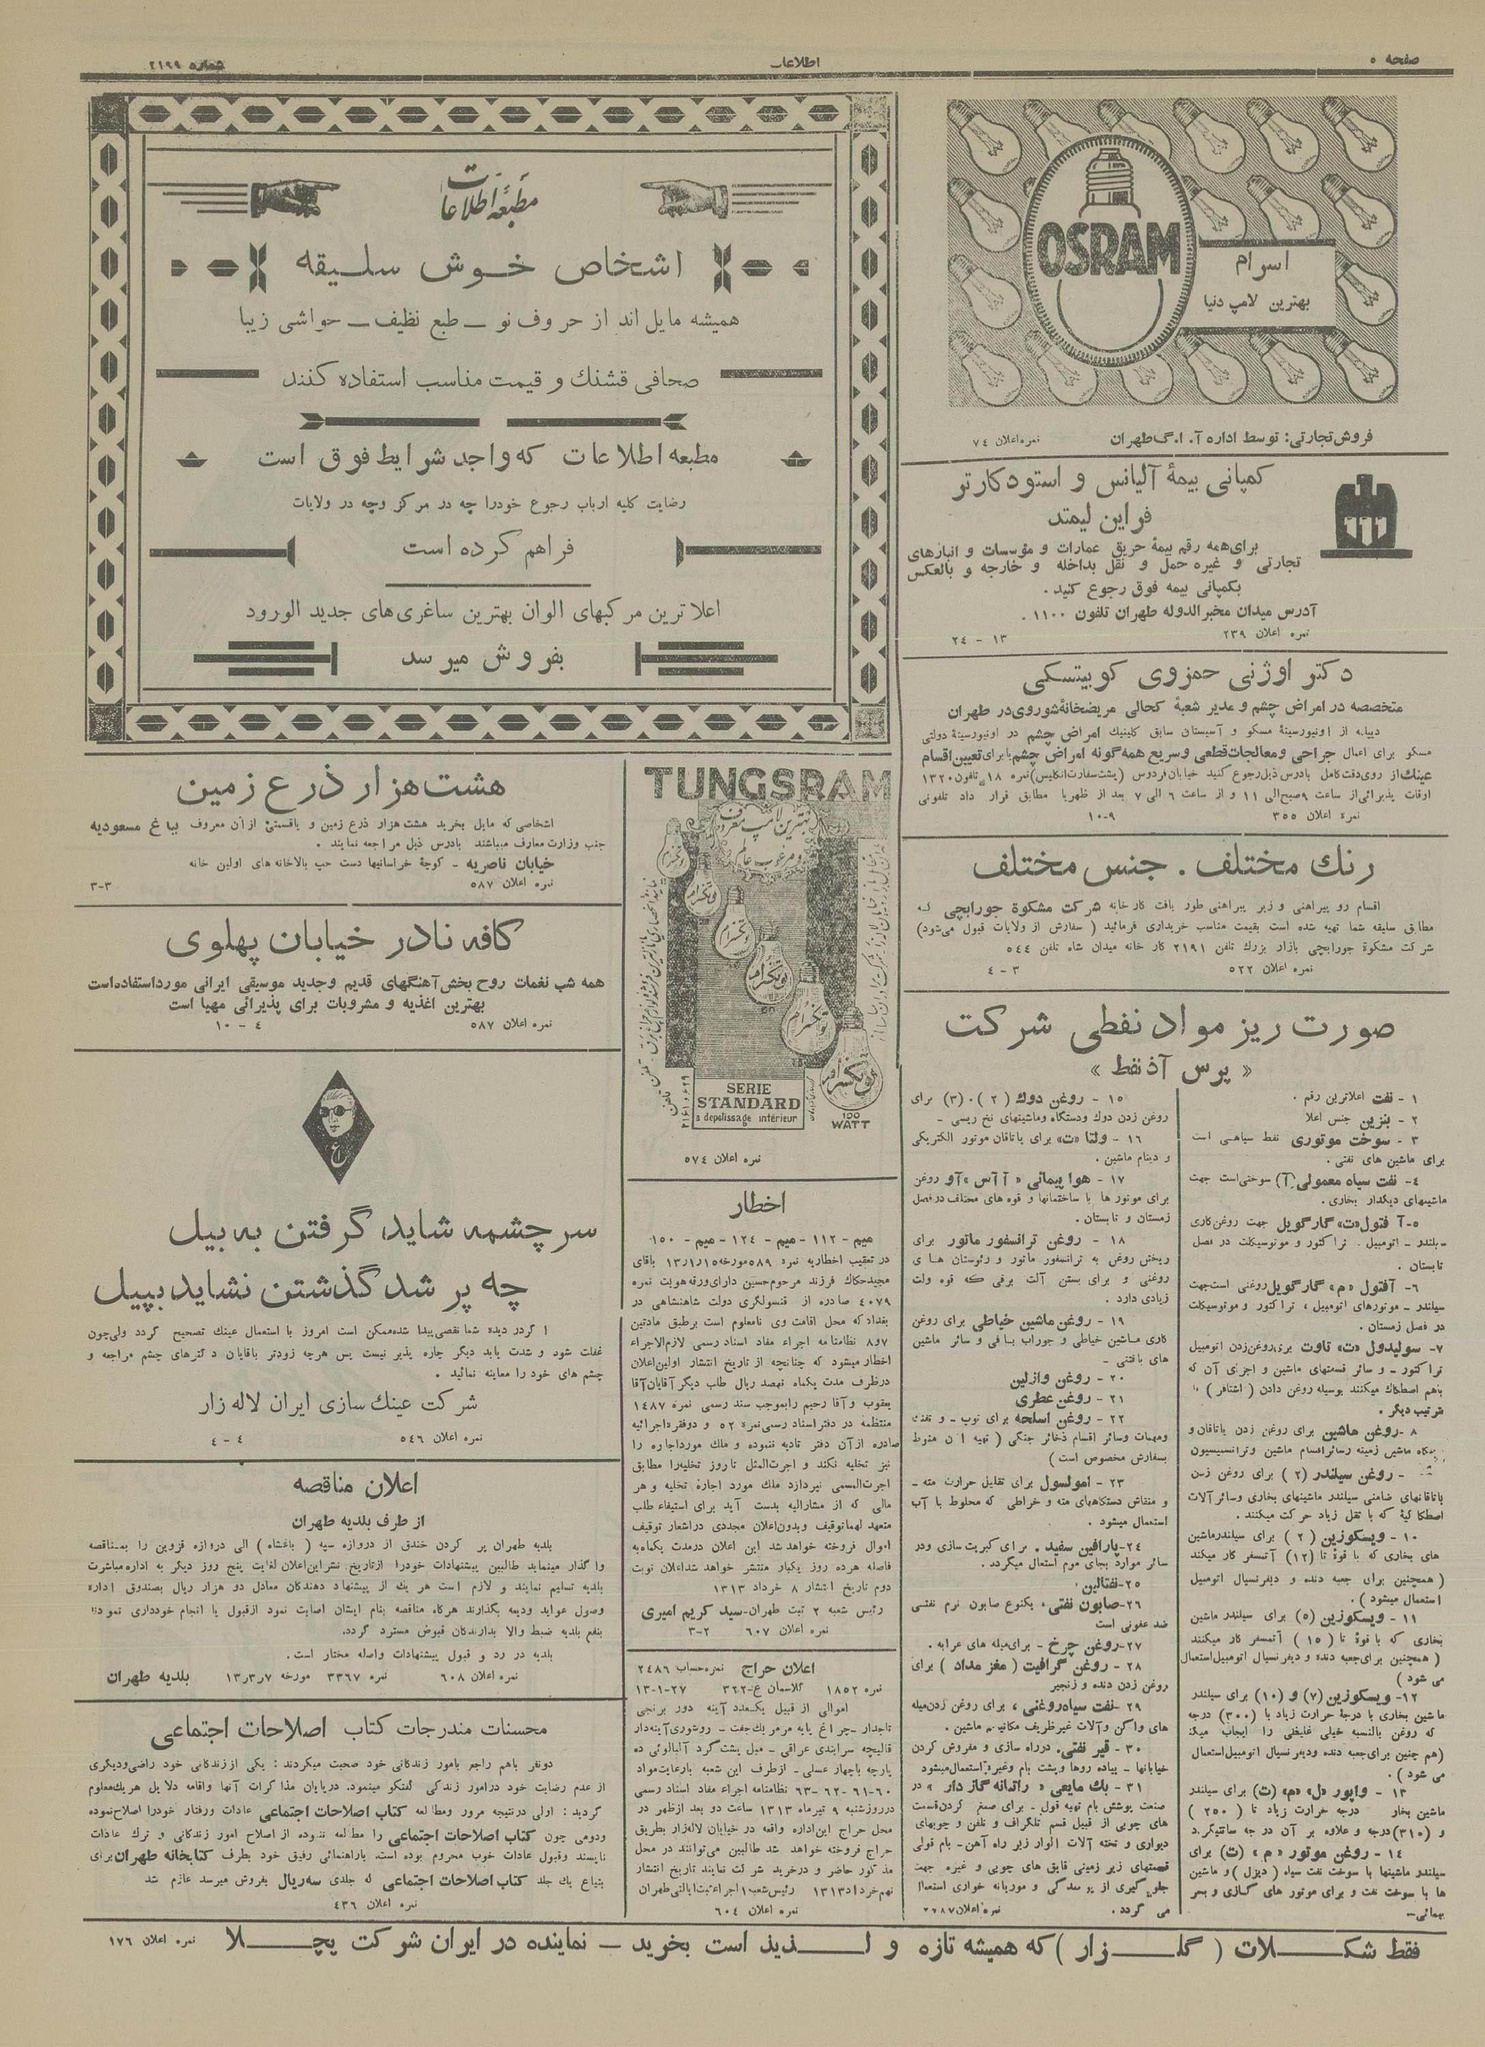 صفحه ۵
اطلاعات
شماره ۲۱۹۹
OSRAM
اسرام
بهترین لامپ دنیا
فروش تجارتی: توسط اداره آ. ا. گ طهران
نمره اعلان ۷۴
کمپانی بیمهٔ آلیانس و استودکارتر
فراین لیمتد
برای همه رقم بیمهٔ حریق عمارات و مؤسسات و انبارهای
تجارتی و غیره حمل و نقل بداخله و خارجه و بالعکس
بکمپانی بیمه فوق رجوع کنید .
آدرس میدان مخبرالدوله طهران تلفون ۱۱۰۰ .
نمره اعلان ۲۳۹
۱۳ – ۲۴
دکتر اوژنی حمزوی کوبیتسکی
متخصصه در امراض چشم و مدیر شعبهٔ کحالی مریضخانهٔ شوروی در طهران
دیپلمه از اونیورسیتهٔ مسکو و آسیستان سابق کلینیک امراض چشم در اونیورسیتهٔ دولتی
مسکو برای اعمال جراحی و معالجات قطعی و سریع همه گونه امراض چشم یا برای تعیین اقسام
عینک از روی دقت کامل بآدرس ذیل رجوع کنید خیابان فردوس (پشت سفارت انگلیس) نمره ۱۸ تلفون ۱۳۲۰
اوقات پذیرائی از ساعت ۹ صبح الی ۱۱ و از ساعت ۶ الی ۷ بعد از ظهر یا مطابق قرار داد تلفونی
نمره اعلان ۳۵۵
۹-۱۰
رنك مختلف . جنس مختلف
اقسام رو پیراهنی و زیر پیراهنی طور بافت کارخانه شرکت مشکوة جورابچی که
مطابق سلیقه شما تهیه شده است بقیمت مناسب خریداری فرمائید ( سفارش از ولایات قبول می‌شود)
شرکت مشکوة جورابچی بازار بزرك تلفن ۲۱۹۱ کارخانه میدان شاه تلفن ۵۴۴
نمره اعلان ۵۲۲
۳ – ۴
صورت ریز مواد نفطی شرکت
« پرس آذ نفط »
۱ - نفت اعلاترین رقم .
۲ - بنزین جنس اعلا
۳ - سوخت موتوری نفط سیاهی است
برای ماشین های نفتی .
۴- نفت سیاه معمولی (آ) سوختی است جهت
ماشینهای دیگدار بخاری .
۵-آ فتول «ت» گارگویل جهت روغن کاری
سیلندر – اتومبیل . تراکتور و موتوسیکلت در فصل
تابستان .
۶- آفتول «م» گارگویل روغنی است جهت
سیلندر – موتورهای اتومبیل ، تراکتور و موتوسیکلت
در فصل زمستان .
۷- سولیدول «ت» تاوت برای روغن زدن اتومبیل
تراکتور – و سائر قسمتهای ماشین و اجزای آن که
باهم اصطکاك میکنند بوسیله روغن دادن ( اشتافر ) یا
ترتیب دیگر .
۸ -روغن ماشین برای روغن زدن یاتاقان و
دستگاه ماشین زمینه و سائر اقسام ماشین و ترانسمیسیون
- روغن سیلندر (۲) برای روغن زدن
یاتاقانهای ضامنی سیلندر ماشینهای بخاری و سائر آلات
اصطکاکیهٔ که با ثقل زیاد حرکت میکنند .
۱۰ - ویسکوزین (۲) برای سیلندر ماشین
های بخاری که با قوهٔ تا (۱۲) آتمسفر کار میکند
( همچنین برای جعبه دنده و دیفرنسیال اتومبیل
استعمال میشود ) .
۱۱ - ویسکوزین (۵) برای سیلندر ماشین
بخاری که با قوهٔ تا (۱۵) آتمسفر کار میکنند
( همچنین برای جعبه دنده و دیفرنسیال اتومبیل استعمال
می شود )
۱۲- ویسکوزین (۷) و (۱۰) برای سیلندر
ماشین بخاری با درجهٔ حرارت زیاد با (۳۰۰) درجه
که روغن بالنسبه خیلی غلیظی را ایجاب میکند
(هم چنین برای جعبه دنده ودیفرنسیال اتومبیل استعمال
می شود ) .
۱۳ - واپور «ل» «م» (ت) برای سیلندر
ماشین بخار درجه حرارت زیاد تا (۲۵۰)
و (۳۱۰) درجه و علاوه بر آن درجه سانتیگرد
۱۴ - روغن موتور «م» (ت) برای
سیلندر ماشینها با سوخت نفت سیاه (دیزل) و ماشین
ها با سوخت نفت و برای موتور های گازی و بسر
بهمائی–
۱۵ - روغن دوك ( ۲ ) ۰ (۳) برای
روغن زدن دوك ودستگاه وماشینهای نخ ریسی -
۱۶ - ولتا «ت» برای یاتاقان موتور الکتریکی
و دینام ماشین .
۱۷ - هوا پیمائی « آ آس » آو روغن
برای موتور ها با ساختمانها و قوه های مختلف در فصل
زمستان و تابستان .
۱۸ - روغن ترانسفور ماتور برای
ریختن روغن به ترانسفور ماتور و رئوستان های
روغنی و برای بستن آلت برقی که قوه ولت
زیادی دارد .
۱۹ - روغن ماشین خیاطی برای روغن
کاری ماشین خیاطی و جوراب بافی و سائر ماشین
های بافتنی -
۲۰ - روغن وازلین
۲۱ - روغن عطری
۲۲ - روغن اسلحه برای توپ - و تفنك
ومهمات وسائر اقسام ذخائر جنگی ( تهیه آن منوط
بسفارش مخصوص است )
۲۳ - امولسول برای تقلیل حرارت مته -
و منقاش دستگاههای مته و خراطی که مخلوط با آب
استعمال میشود .
۲۴- پارافین سفید . برای کبریت سازی ودر
سائر موارد بجای موم استعمال میگردد .
۲۵- نفتالین .
۲۶-صابون نفتی ، یکنوع صابون نرم نفتی
ضد عفونی است
۲۷-روغن چرخ - برای میله های عرابه .
۲۸ - روغن گرافیت ( مغز مداد ) برای
روغن زدن دنده و زنجیر
۲۹ -نفت سیاه روغنی ، برای روغن زدن میله
های واگن وآلات غیر ظریف مکانیزم ماشین .
۳۰ - قیر نفتی . در راه سازی و مفروش کردن
خیابانها - پیاده روها وپشت بام وغیره استعمال میشود
۳۱ - پك مایعی « راتمانه گاز دار » در
صنعت پوشش بام تهیه قول - برای صمغ کردن قسمت
های چوبی از قبیل قسم تلگراف و تلفن و چوبهای
دیواری و تخته آلات الوار زیر راه آهن - بام قولی
قسمتهای زیر زمینی قایق های چوبی و غیره جهت
جلوگیری از پوسیدگی و موریانه خواری استعمال
می گردد .
مطبعه اطلاعات
اشخاص خوش سلیقه
همیشه مایل اند از حروف نو – طبع نظیف – حواشی زیبا
صحافی قشنك و قیمت مناسب استفاده کنند
مطبعه اطلاعات که واجد شرایط فوق است
رضایت کلیه ارباب رجوع خودرا چه در مرکز وچه در ولایات
فراهم کرده است
اعلا ترین مرکبهای الوان بهترین ساغری‌های جدید الورود
بفروش میرسد
TUNGSRAM
بهترین لامپ معروف
و مرغوب عالم
تونگسرام
تونگسرام
تونگسرام
تونگسرام
تونگسرام
تونگسرام
SERIE
STANDARD
a depolissage intérieur
100
WATT
نمره اعلان ۵۷۴
اخطار
میم - ۱۱۲ - میم - ۱۲۴ - میم - ۱۵۰
در تعقیب اخطاریه نمره ۵۸۹ مورخه ۱۳٫۱٫۱۵ باقای
مجید حکاك فرزند مرحوم حسین دارای ورقه هویت نمره
۴۰۷۹ صادره از قنسولگری دولت شاهنشاهی در
بغداد که محل اقامت وی نامعلوم است برطبق مادتین
۷و۸ نظامنامه اجراء مفاد اسناد رسمی لازم الاجراء
اخطار میشود که چنانچه از تاریخ انتشار اولین اعلان
در ظرف مدت یکماه نهصد ریال طلب دیگر آقایان آقا
یعقوب وآقا رحیم را بموجب سند رسمی نمره ۱۴۸۷
منتظمه در دفتر اسناد رسمی نمره ۵۲ و دو فقره اجرائیه
صادره از آن دفتر تادیه ننموده و ملك مورد اجاره را
نیز تخلیه نکند و اجرت المثل تا روز تخلیه را مطابق
اجرت المسمی نپردازد ملك مورد اجاره تخلیه و هر
مالی که از مشارالیه بدست آید برای استیفاء طلب
متعهد لهما توقیف وبدون اعلان مجددی در اشعار توقیف
اموال فروخته خواهد شد این اعلان در مدت یکماه به
فاصله هرده روز یکبار منتشر خواهد شد اعلان نوبت
دوم تاریخ انتشار ۸ خرداد ۱۳۱۳
رئیس شعبه ۲ ثبت طهران-سید کریم امیری
نمره اعلان ۶۰۷
۲-۳
اعلان حراج
نمره حساب ۲۴۸۶
نمره ۱۸۵۲ کلاسمان غ-۳۲۲ ۲۷-۱-۱۳
اموالی از قبیل یکعدد آینه دور برنجی
تاجدار –چراغ پایه مرمر یك جفت - روشوری آینه دار
قالیچه سرابندی عراقی - مبل پشت گرد آلبالوئی ده
پارچه باچهار عسلی - از طرف این شعبه بارعایت مواد
۶۰-۶۱ -۶۲ -۶۳ نظامنامه اجراء مفاد اسناد رسمی
در روز شنبه ۹ تیر ماه ۱۳۱۳ ساعت دو بعد از ظهر در
محل حراج این اداره واقعه در خیابان لاله زار بطریق
حراج فروخته خواهد شد طالبین می‌توانند در محل
مذکور حاضر و در خرید شرکت نمایند تاریخ انتشار
نهم خرداد ۱۳۱۳ رئیس شعبه ۱ اجراء ثبت ایالتی طهران
نمره اعلان ۶۰۴
هشت هزار ذرع زمین
اشخاصی که مایل بخرید هشت هزار ذرع زمین و یا قسمتی از آن معروف بباغ مسعودیه
جنب وزارت معارف میباشند بآدرس ذیل مراجعه نمایند .
خیابان ناصریه - کوچهٔ خراسانیها دست چپ بالاخانه های اولین خانه
نمره اعلان ۵۸۷
۳-۳
کافه نادر خیابان پهلوی
همه شب نغمات روح بخش آهنگهای قدیم وجدید موسیقی ایرانی مورد استفاده است
بهترین اغذیه و مشروبات برای پذیرائی مهیا است
نمره اعلان ۵۸۷
۴ - ۱۰
سر چشمه شاید گرفتن به بیل
چه پر شد گذشتن نشاید بپیل
ا گر در دیده شما نقصی پیدا شده ممکن است امروز با استعمال عینك تصحیح گردد ولی چون
غفلت شود و شدت یابد دیگر چاره پذیر نیست پس هرچه زودتر باقایان دکترهای چشم مراجعه و
چشم های خود را معاینه نمائید .
شرکت عینك سازی ایران لاله زار
نمره اعلان ۵۴۶
۴ - ۴
اعلان مناقصه
از طرف بلدیه طهران
بلدیه طهران پر کردن خندق از دروازه سپه ( باغشاه ) الی دروازه قزوین را بمناقصه
واگذار مینماید طالبین پیشنهادات خودرا از تاریخ نشر این اعلان لغایت پنج روز دیگر به اداره مباشرت
بلدیه تسلیم نمایند و لازم است هر یك از پیشنهاد دهندگان معادل دو هزار ریال بصندوق اداره
وصول عواید ودیعه بگذارند هرگاه مناقصه بنام ایشان اصابت نمود از قبول یا انجام خودداری نمودند
بنفع بلدیه ضبط والا بدارندگان قبوض مسترد گردد.
بلدیه در رد و قبول پیشنهادات واصله مختار است .
نمره اعلان ۶۰۸ نمره ۳۳۶۷ مورخه ۱۳٫۳٫۷ بلدیه طهران
محسنات مندرجات کتاب اصلاحات اجتماعی
دونفر باهم راجع بامور زندگانی خود صحبت میکردند : یکی از زندگانی خود راضی ودیگری
از عدم رضایت خود در امور زندگی گفتگو مینمود. در پایان مذاکرات آنها واقامه دلایل هریك معلوم
گردید : اولی در نتیجه مرور ومطالعه کتاب اصلاحات اجتماعی عادات ورفتار خودرا اصلاح نموده
ودومی چون کتاب اصلاحات اجتماعی را مطالعه ننموده از اصلاح امور زندگانی و ترك عادات
ناپسند وقبول عادات خوب محروم بوده است. باراهنمائی رفیق خود بطرف کتابخانه طهران برای
ابتیاع یك جلد کتاب اصلاحات اجتماعی که جلدی سه ریال بفروش میرسد عازم شد
نمره اعلان ۴۳۶
فقط شکلات ( گلزار ) که همیشه تازه و لذیذ است بخرید – نماینده در ایران شرکت یچلا
نمره اعلان ۱۷۶